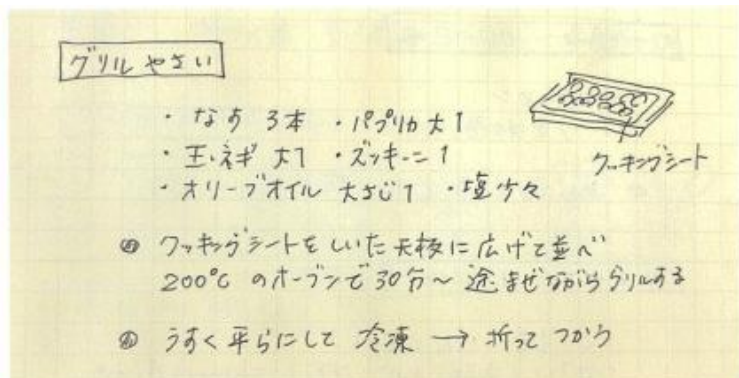 グリルやさい
・なす 3本 ・パプリカ 大1
・玉ネギ 大1 ・ズッキーニ 1
・オリーブオイル 大さじ1 ・塩少々
クッキングシート
クッキングシートをしいた天板に広げて並べ
200°Cのオーブンで30分〜 途まぜながらグリルする
うすく平らにして 冷凍 → 折ってつかう